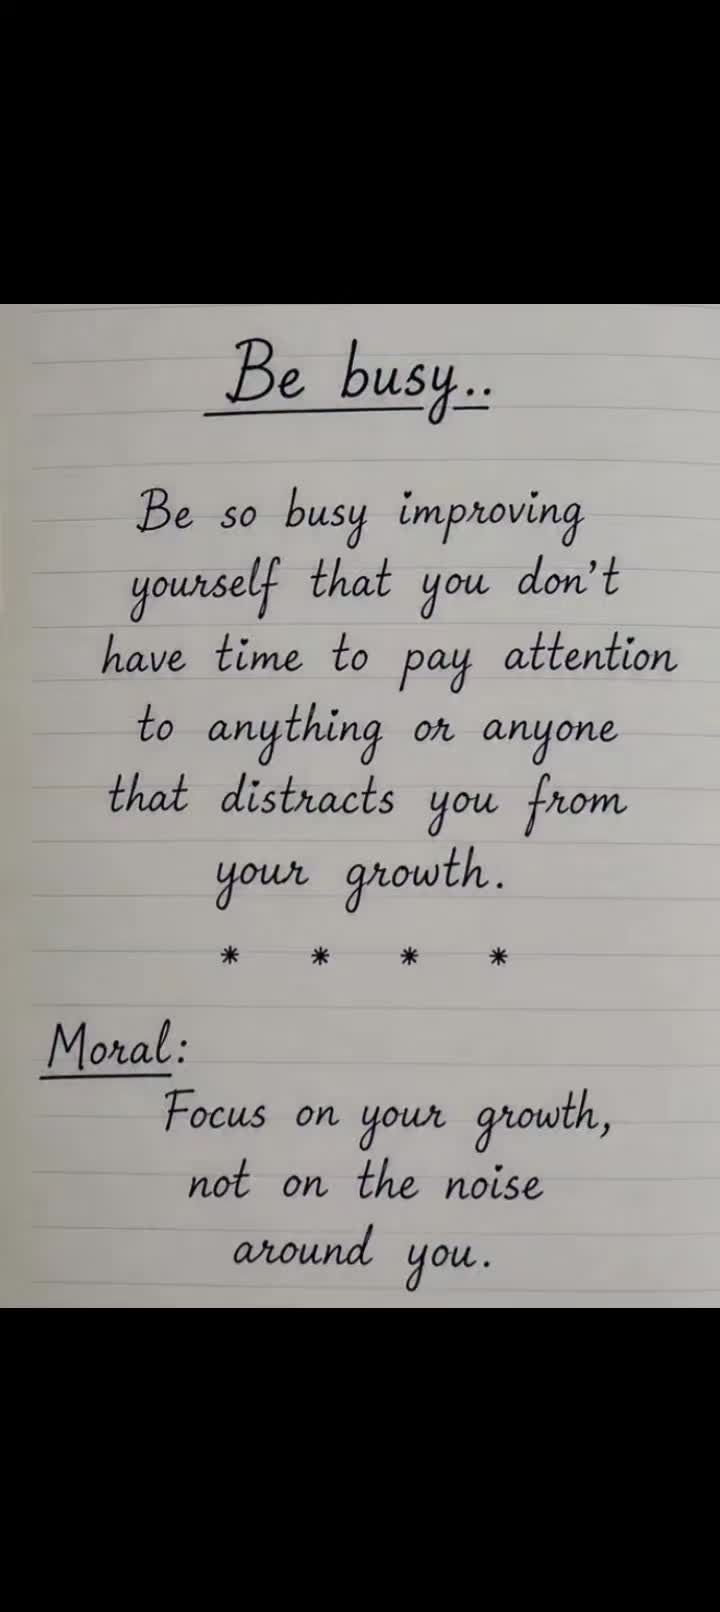 Be busy..
Be so busy improving
yourself that you don't
have time to pay attention
to anything or anyone
that distracts you from
your growth.
* * * *
Moral:
Focus on your growth,
not on the noise
around you.